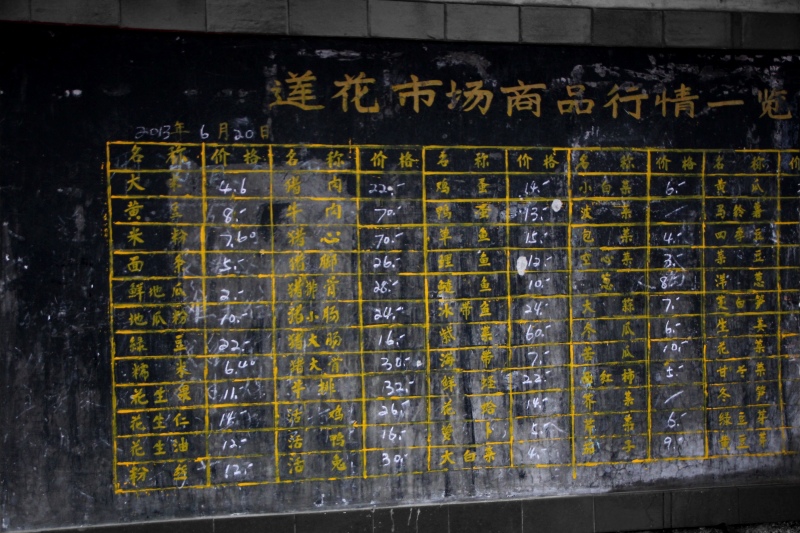 莲花市场商品行情一览
2013年 6月20日
名 称 价 格 名 称 价 格 名 称 价 格 名 称 价 格 名 称
大 4.6 猪 肉 鸡 蛋 14.- 小 白 菜 6.- 黄 瓜
黄 豆 8.- 牛 肉 70.- 鸭 蛋 13.- 菠 菜 马 铃 薯
米 粉 7.60 猪 心 70.- 草 鱼 15.- 包 菜 4.- 四 季 豆
面 条 5.- 猪 脚 26.- 鲤 鱼 12.- 空 心 菜 3.-
鲜 地 瓜 2.- 猪 排 骨 28.- 鲢 鱼 10.- 葱 洋 葱
地 瓜 粉 10.- 猪 小 肠 24.- 冰 带 鱼 24.- 大 蒜 7.- 茭 白 笋
绿 豆 22.- 猪 大 肠 16.- 紫 菜 60.- 冬 瓜 6.- 生 姜
粉 6.40 猪 大 骨 30.- 海 带 7.- 苦 瓜 10.- 花 菜
花 生 11.- 牛 排 32.- 鲜 蛏 22.- 红 柿 甘
花 生 仁 14.- 活 鸡 26.- 花 蛤 14.- 菜 冬 笋
花 生 油 12.- 活 鸭 16.- 5.- 菜 6.- 绿 豆 芽
粉 丝 12.- 活 兔 30.- 大 白 菜 4.- 茄 子 9.- 黄 豆 芽